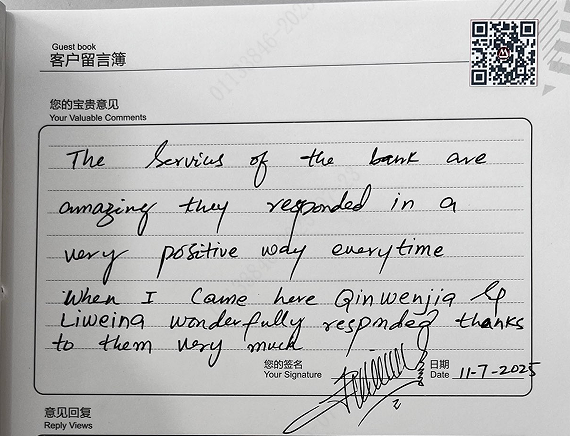 Guest book
客户留言簿
您的宝贵意见
Your Valuable Comments
The Servius of the bank are
amazing they responded in a
very positive way everytime
When I came here Qinwenjia &
Liweina wonderfully responded thanks
to them very much
您的签名
Your Signature
日期
Date 11-7-2025
意见回复
Reply Views